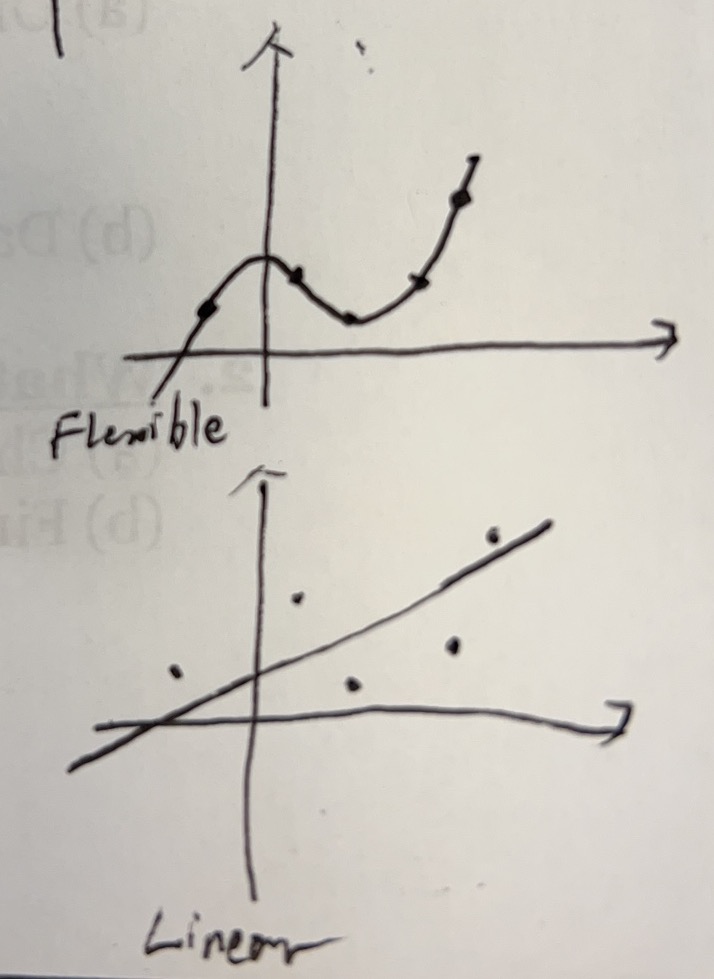 Flexible
Linear